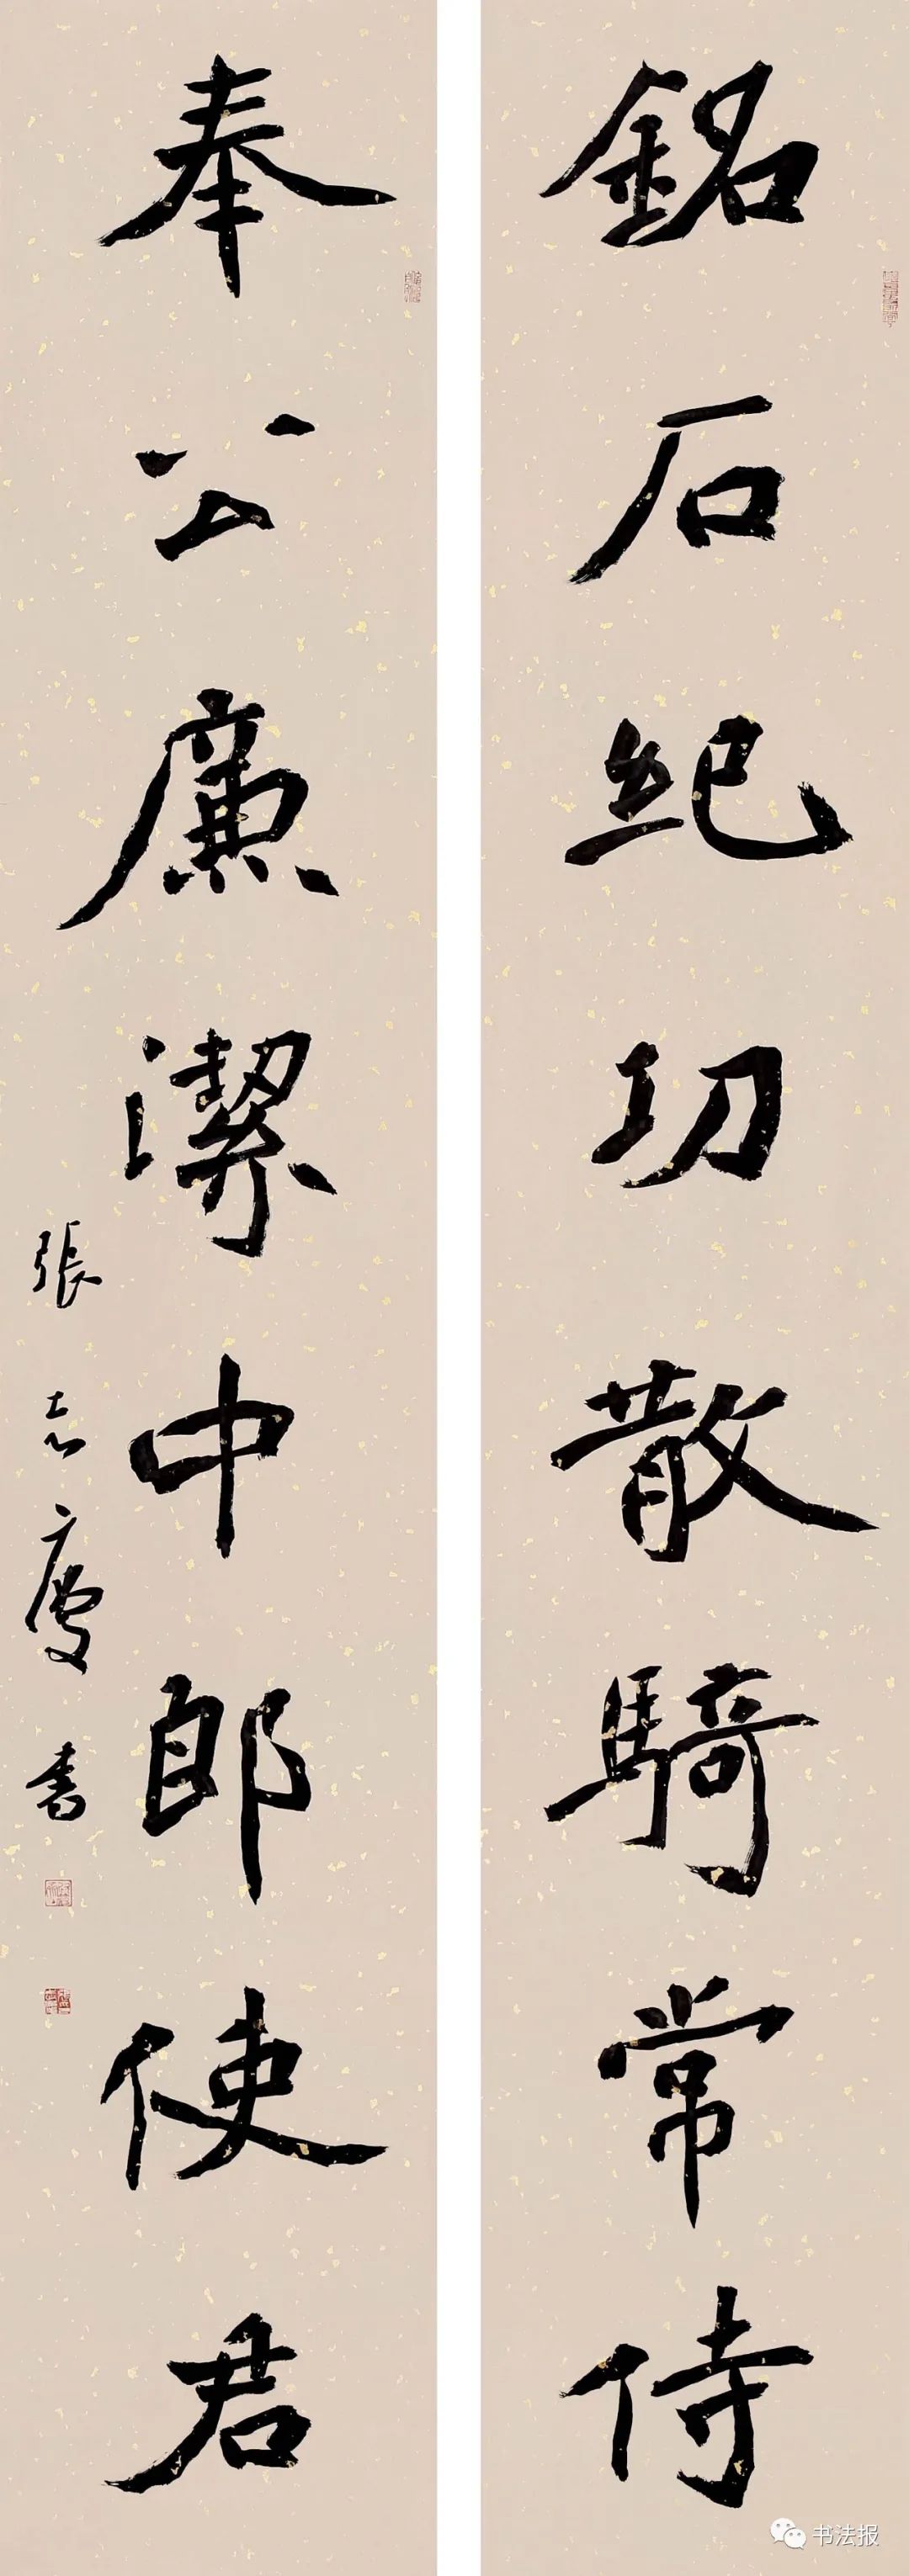 銘石紀功散騎常侍
奉公廉潔中郎使君
張志慶書
书法报